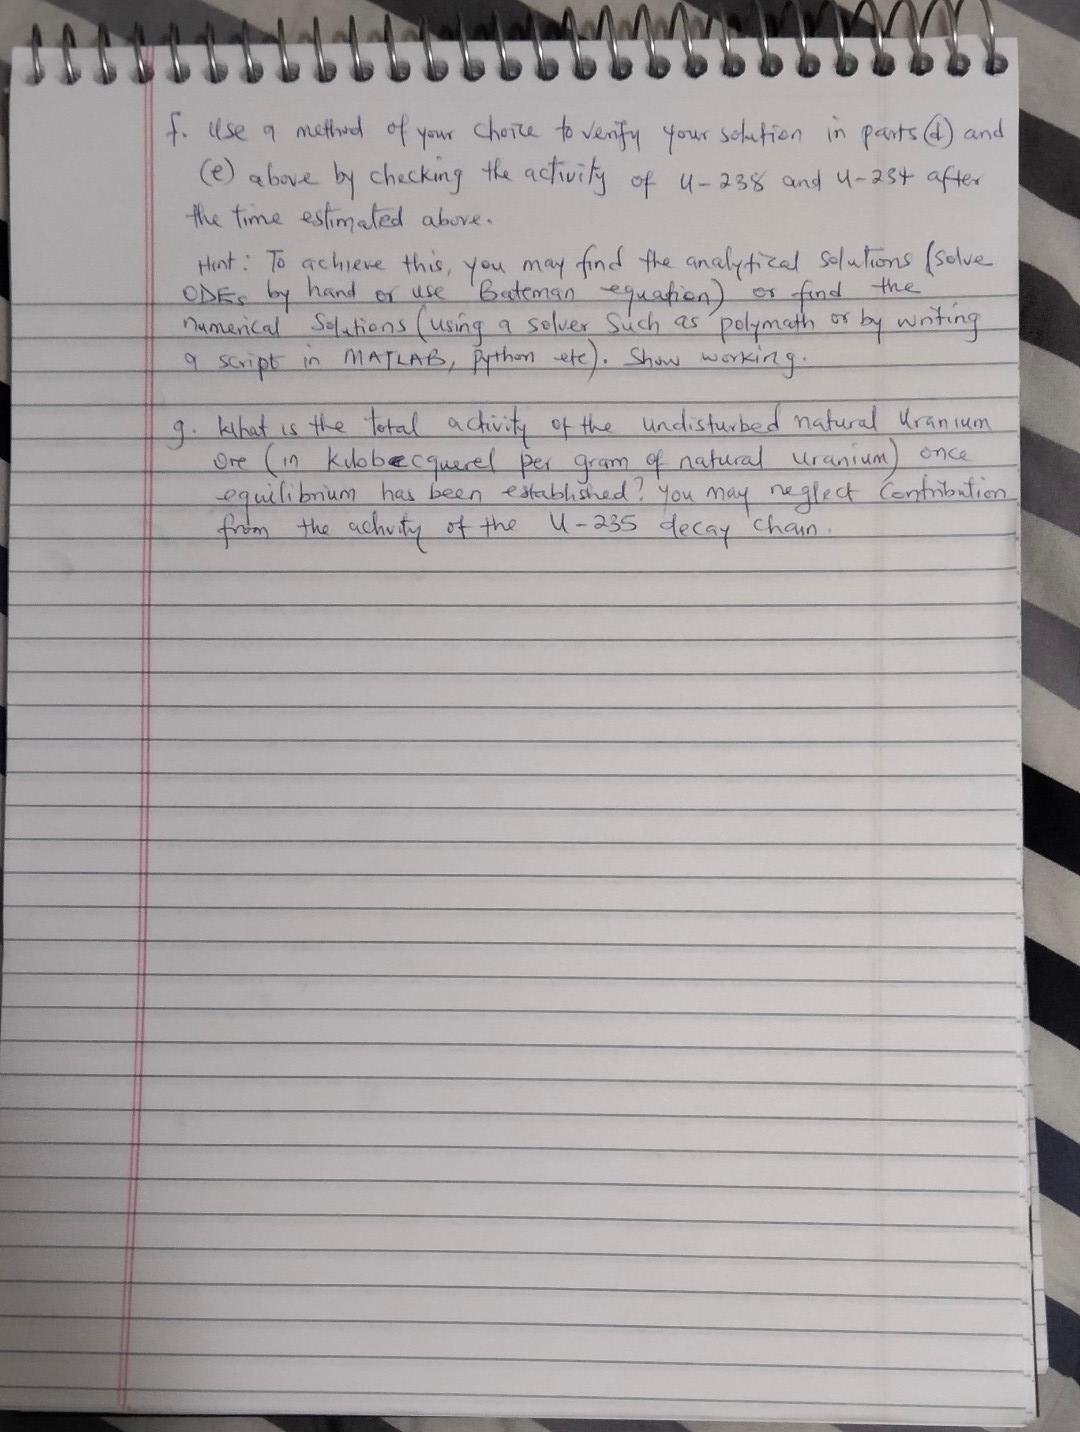 f. Use a method of your choice to verify your solution in parts (d) and
(e) above by checking the activity of U-238 and U-234 after
the time estimated above.
Hint: To achieve this, you may find the analytical solutions (solve
ODEs by hand or use Bateman equation) or find the
numerical Solutions (using a solver such as polymath or by writing
a script in MATLAB, python etc). Show working.
g. What is the total activity of the undisturbed natural Uranium
Ore (in kilobecquerel per gram of natural uranium) once
equilibrium has been established? You may neglect contribution
from the activity of the U-235 decay chain.